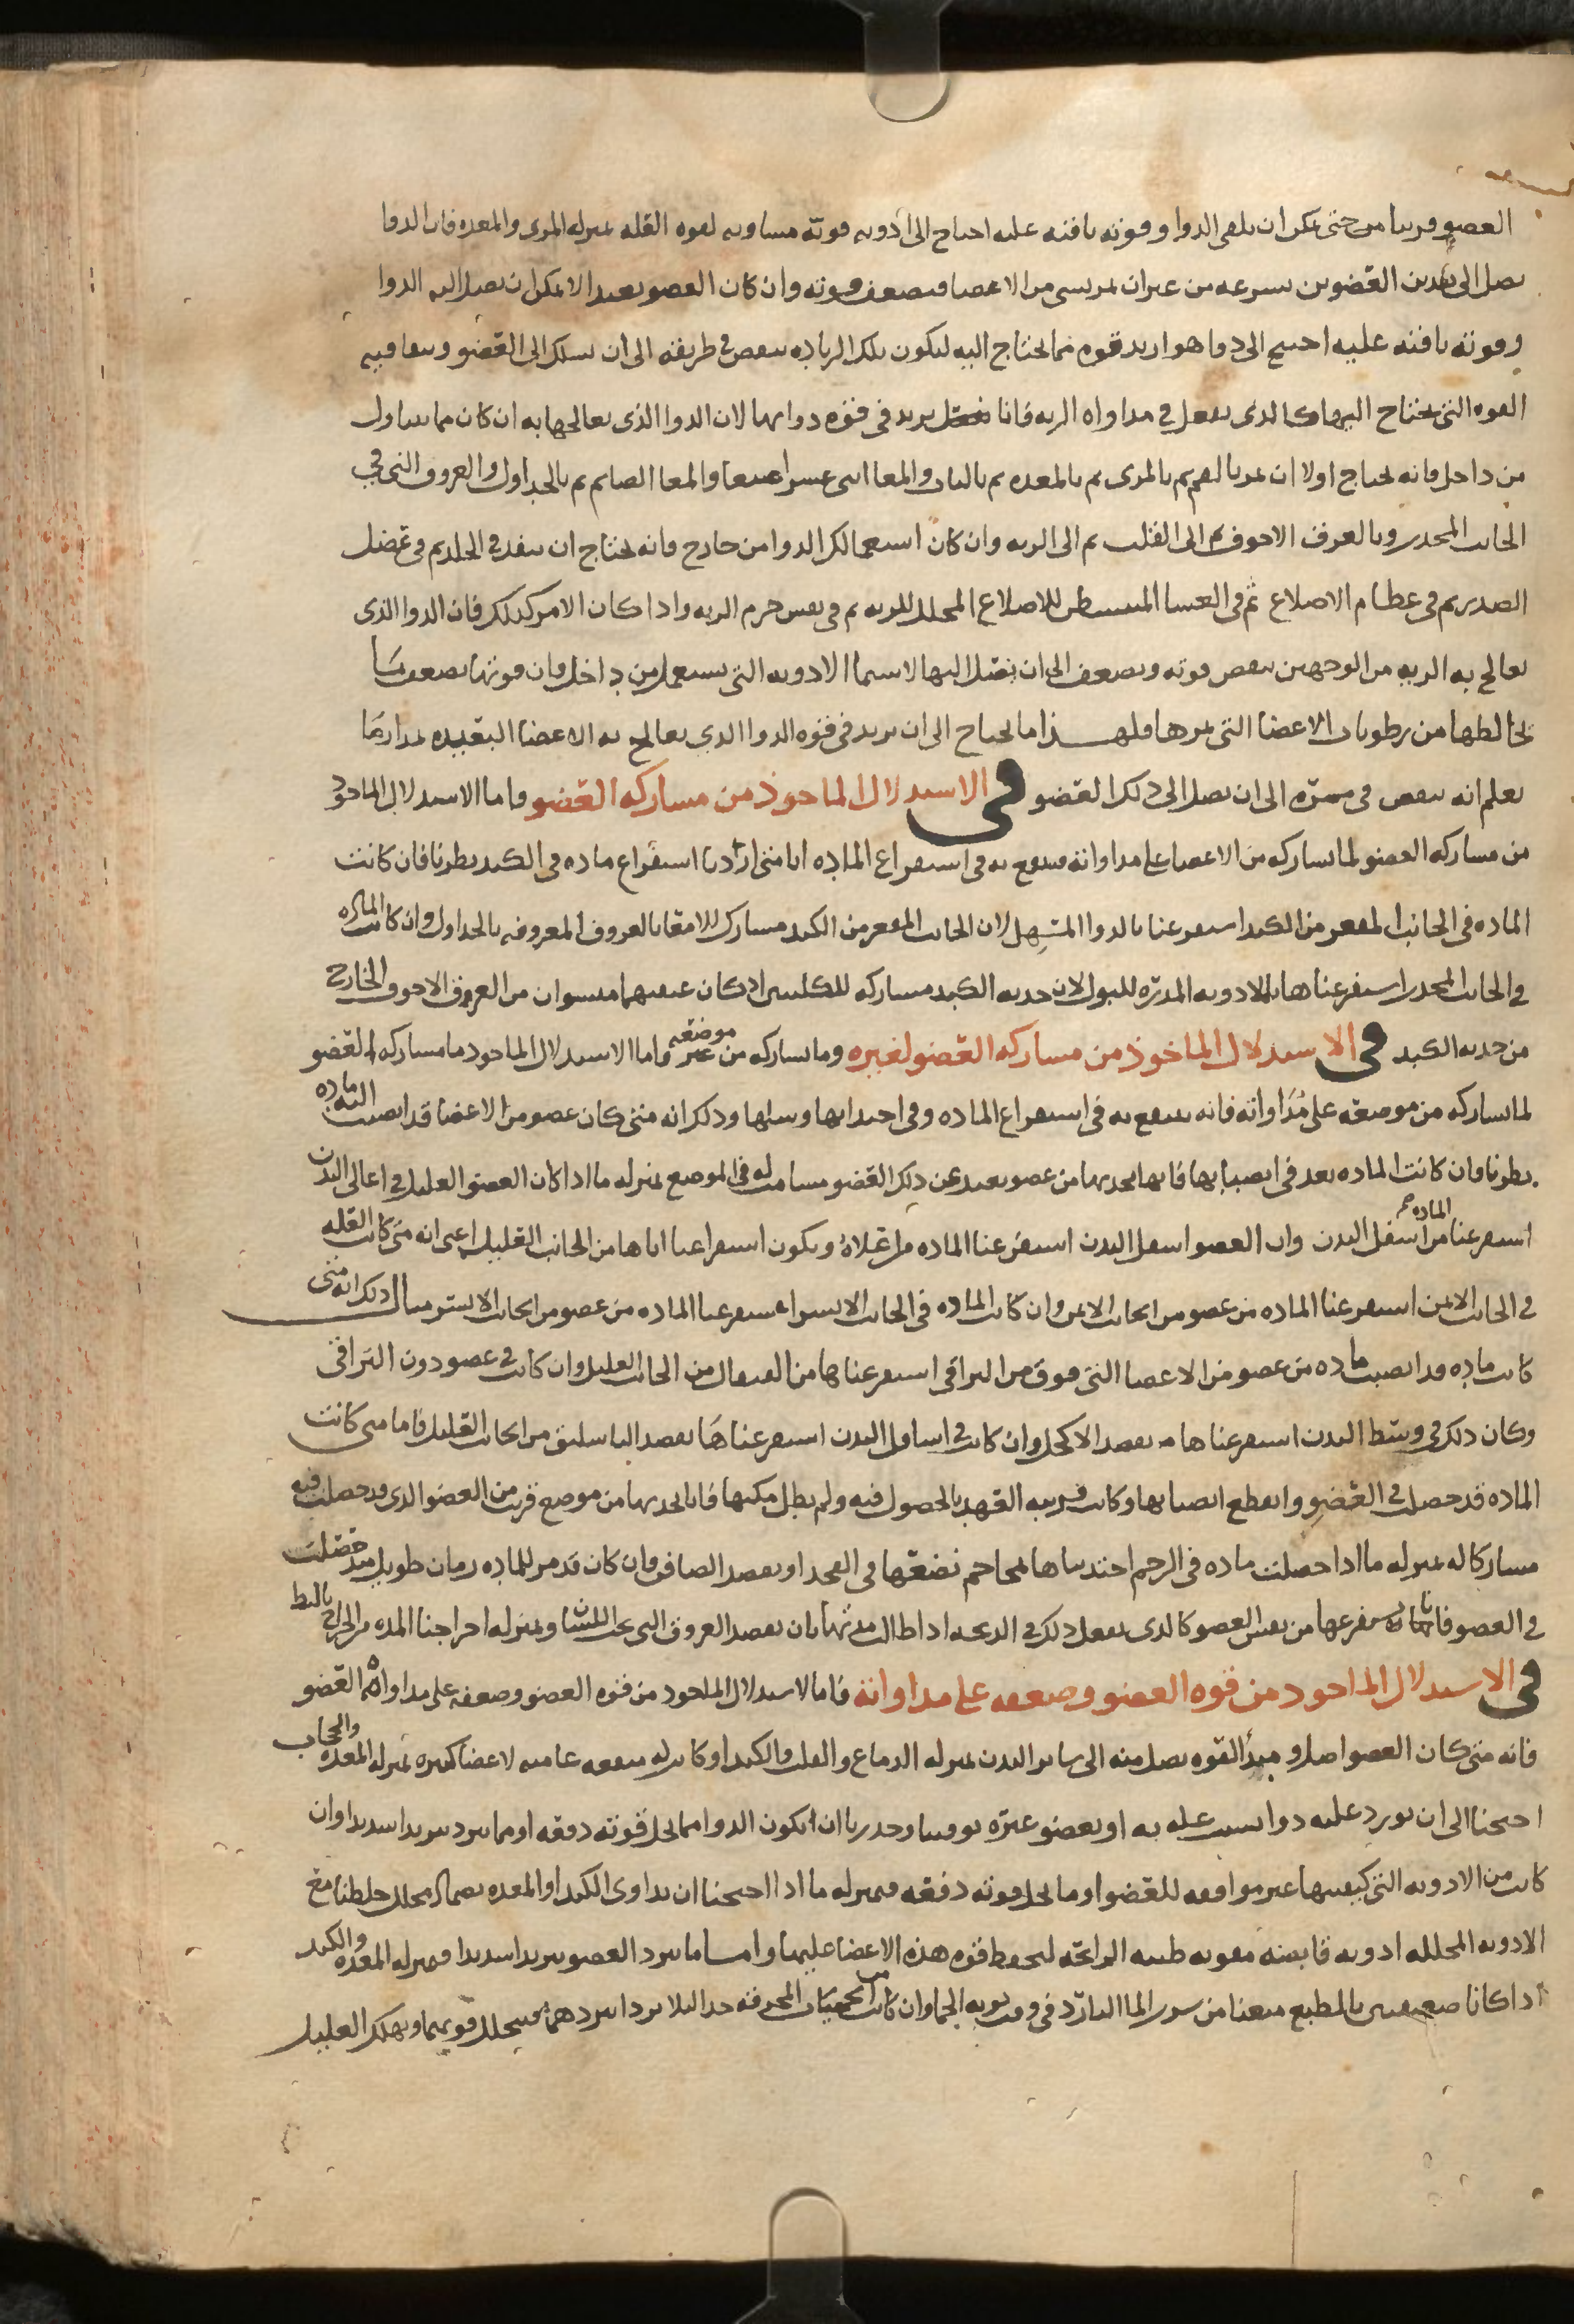 العضو قريبا من حتى يمكن ان يلقى الدوا وقوته باقيه عليه احتاج الى ادويه قوته مساويه لقوه العله بمنزله المرى والمعده فان الدوا
يصل الى هذين العضوين بسرعه من غير ان يمر بشى من الاعضا فيضعف قوته وان كان العضو بعيدا لا يمكن ان يصل اليه الدوا
وقوته باقيه عليه احتيج الى دوا هو ازيد قوه مما يحتاج اليه ليكون تلك الزياده تنقص فى طريقه الى ان يسلك الى العضو وتبقا فيه
القوه التى يحتاج اليها كالذى يفعل فى مداواه الريه فانا نزيد فى قوه دوايها لان الدوا الذى يعالجها به ان كان مما يتناول
من داخل فانه يحتاج اولا ان يمر بالفم ثم بالمرى ثم بالمعده ثم بالبواب والمعا اثنى عشر اصبعا والمعا الصايم ثم بالجداول والعروق التى فى
الجانب المحدب وبالعرق الاجوف ثم الى القلب ثم الى الريه وان كان استعمالك الدوا من خارج فانه يحتاج ان ينفذ فى الجلد ثم فى عضل
الصدر ثم فى عظام الاضلاع ثم فى الغشا المستبطن للاضلاع المجلل للريه ثم فى نفس جرم الريه واذا كان الامر كذلك فان الدوا الذى
يعالج به الريه من الوجهين ينقص قوته ويضعف الى ان يصل اليها لا سيما الادويه التى تستعمل من داخل فان قوتها تضعف بما
يخالطها من رطوبات الاعضا التى يمر بها فلهذا ما يحتاج الى ان يزيد فى قوه الدوا الذى يعالج به الاعضا البعيده بمقدار ما
يعلم انه ينقص فى ممره الى ان يصل الى ذلك العضو فى الاستدلال الماخوذ من مشاركه العضو واما الاستدلال الماخوذ
من مشاركه العضو لما يشاركه من الاعضا على مداواته فينتفع به فى استفراغ الماده انا متى اردنا استفراغ ماده فى الكبد نظرنا فان كانت
الماده فى الجانب المقعر من الكبد استفرغنا بالدوا المسهل لان الجانب المقعر من الكبد مشارك للامعا بالعروق المعروفه بالجداول وان كانت الماده
فى الجانب المحدب استفرغناها بالادويه المدره للبول لان حدبه الكبد مشاركه للكليتين اذ كان عنقيهما من العرق الاجوف الخارج
من حدبه الكبد فى الاستدلال الماخوذ من مشاركه العضو لغيره وما يشاركه من غير موضعه واما الاستدلال الماخوذ مما مشاركه العضو
لما يشاركه من موضعه على مداواته فانه ينتفع به فى استفراغ الماده وفى اجتذابها وسلها وذلك انه متى كان عضو من الاعضا قد انصبت اليه ماده
نظرنا فان كانت الماده بعد فى انصبابها فانها نجذبها من عضو بعيد عن ذلك العضو مسامت له فى الموضع بمنزله ما اذا كان العضو العليل فى اعالى البدن
استفرغنا الماده من اسفل البدن وان العضو اسفل البدن استفرغنا الماده من اعلاه ويكون استفراغنا اياها من الجانب العليل اعنى انه متى كانت العله
فى الجانب الايمن استفرغنا الماده من عضو من الجانب الايمن وان كانت الماده فى الجانب الايسر استفرغنا الماده من عضو من الجانب الايسر مثال ذلك انه متى
كانت ماده قد انصبت ماده من عضو من الاعضا التى فوق من التراقى استفرغناها من القيفال من الجانب العليل وان كانت فى عضو دون التراقى
وكان ذلك فى وسط البدن استفرغناها بفصد الاكحل وان كانت فى اسافل البدن استفرغناها بفصد الباسليق من الجانب العليل فاما متى كانت
الماده قد حصلت فى العضو وانقطع انصبابها وكانت قريبه العهد بالحصول فيه ولم يطل مكثها فانا نجذبها من موضع قريب من العضو الذى قد حصلت فيه
مشاركا له بمنزله ما اذا حصلت ماده فى الرحم اجتذبناها بمحاجم نضعها فى الفخذ او بفصد الصافن وان كان قد مر للماده زمان طويل منذ حصلت
فى العضو فانا نستفرغها من نفس العضو كالذى يفعل ذلك فى الذبحه اذا طالت مدتها بان نفصد العروق التى تحت اللسان وبمنزله اخراجنا المده من الخراج بالبط
فى الاستدلال الماخوذ من قوه العضو وضعفه على مداواته فاما الاستدلال الماخوذ من قوه العضو وضعفه على مداواه العضو
فانه متى كان العضو اصل ومبدأ لقوه يصل منه الى ساير البدن بمنزله الدماغ والقلب والكبد او كانت له منفعه عاميه لاعضا كثيره بمنزله المعده والحجاب
احتجنا الى ان نورد عليه دوا بسبب عله به او بعضو غيره توقينا وحذرنا ان يكون الدوا مما يحل قوته دفعه او مما يبرد تبريدا شديدا وان
كانت من الادويه التى كيفيتها غير موافقه للعضو او ما يحل قوته دفعه فبمنزله ما اذا احتجنا ان نداوى الكبد او المعده بضماد محلل خلطنا مع
الادويه المحلله ادويه قابضه مقويه طيبه الرايحه لتحفظ قوه هذه الاعضا عليها واما ما يبرد العضو تبريدا شديدا فبمنزله المعده والكبد
اذا كانا ضعيفين بالطبع منعنا من شرب الما البارد فى وقت نوبه الحما وان كانت من الحميات المحرقه جدا ليلا يبردا بردهما فينحل قوتهما ويهلك العليل